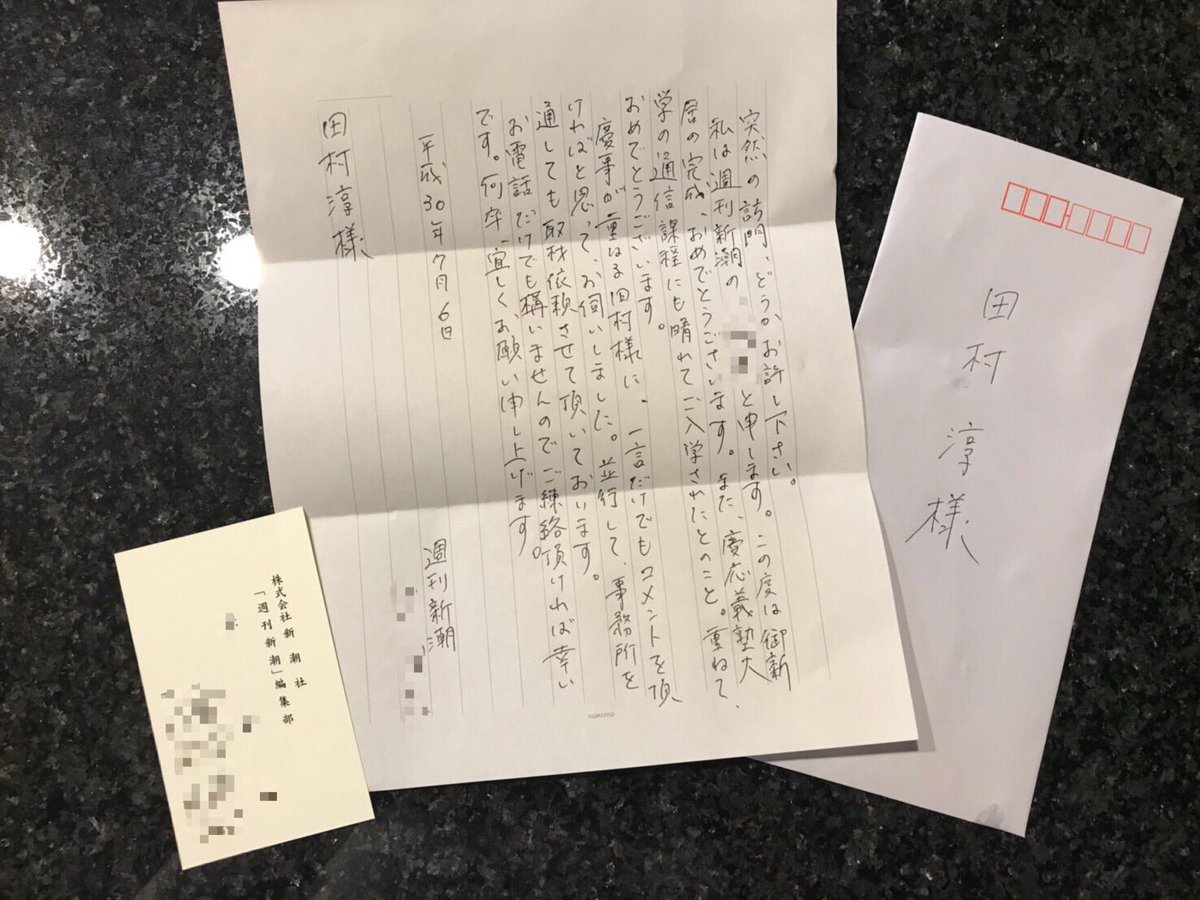 突然の訪門、どうかお許し下さい。
私は週刊新潮の
と申します。この度は御新
居の完成、おめでとうございます。また、慶応義塾大
学の通信課程にも晴れてご入学されたとのこと。重ねて、
おめでとうございます。
慶事が重なる田村様に、一言だけでもコメントを頂
ければと思って、お伺いしました。並行して、事務所を
通しても取材依頼させて頂いております。
お電話だけでも構いませんのでご練絡頂ければ幸い
です。何卒、宜しくお願い申し上げます。
平成30年7月6日
週刊新潮
田村淳様
KOKUYO
田村淳様
株式会社新潮社
「週刊新潮」編集部